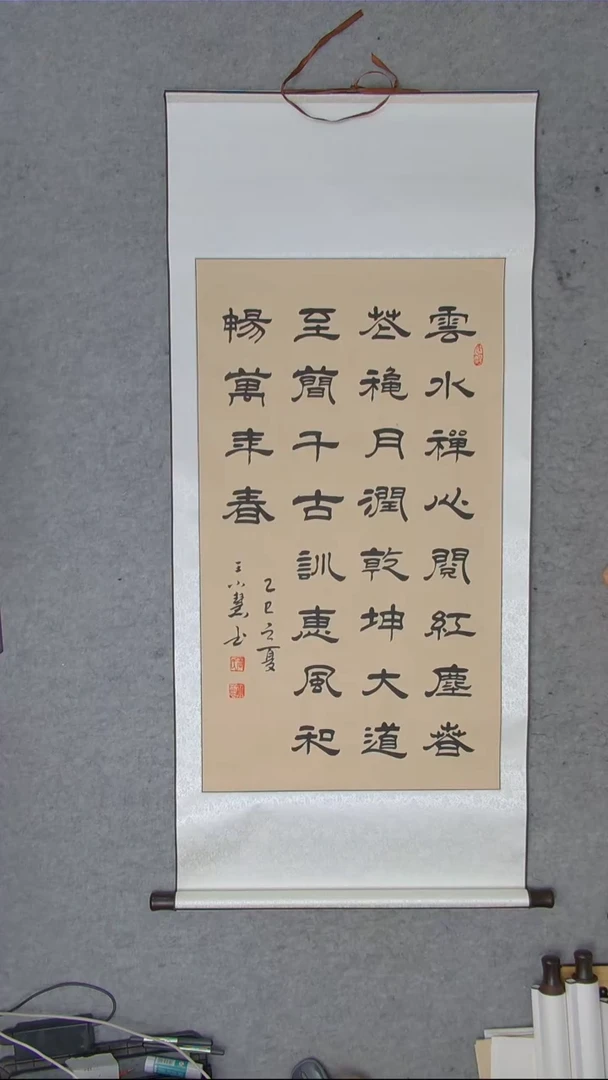 雲水禪心閱紅塵春
花穐月潤乾坤大道
至簡千古訓惠風和
暢萬年春
乙巳之夏
王小慧书